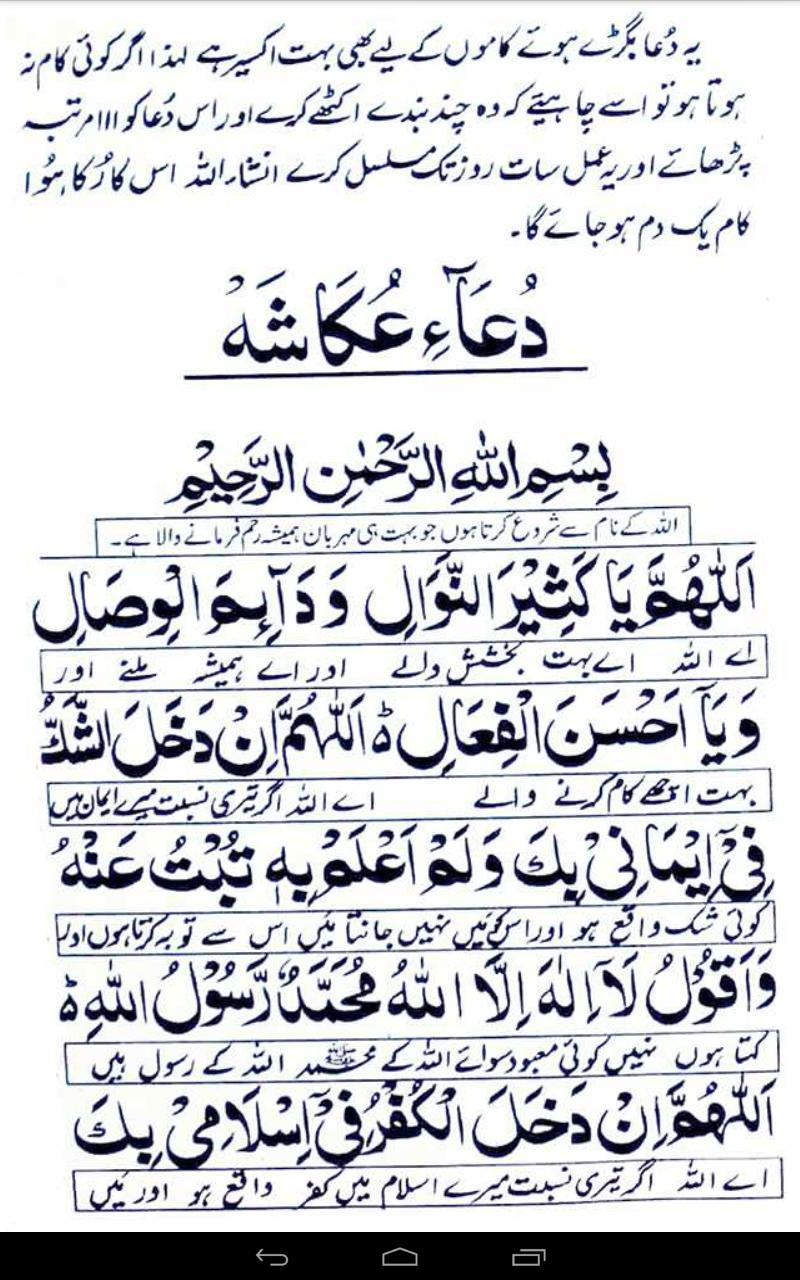 یہ دُعا بگڑے ہوئے کاموں کے لیے بھی بہت اکسیر ہے لہذا اگر کوئی کام نہ
ہوتا ہو تو اسے چاہیئے کہ وہ چند بندے اکٹھے کرے اور اس دُعا کو ۱۱۱ مرتبہ
پڑھائے اور یہ عمل سات روز تک مسلسل کرے انشاء اللہ اس کا رُکا ہُوا
کام یک دم ہو جائے گا۔
دُعَآءِ عُكَاشَهْ
بِسْمِ اللهِ الرَّحْمٰنِ الرَّحِيْمِ
اللہ کے نام سے شروع کرتا ہوں جو بہت ہی مہربان ہمیشہ رحم فرمانے والا ہے۔
اَللّٰهُمَّ يَا كَثِيْرَ النَّوَالِ وَدَآئِمَ الْوِصَالِ
اے اللہ اے بہت بخشش والے اور اے ہمیشہ ملنے اور
وَيَآ اَحْسَنَ الْفِعَالِ ط اَللّٰهُمَّ اِنْ دَخَلَ الشَّكُّ
بہت اچھے کام کرنے والے اے اللہ اگر تیری نسبت میرے ایمان میں
فِيْٓ اِيْمَانِيْ بِكَ وَلَمْ اَعْلَمْ بِهٖ تُبْتُ عَنْهُ
کوئی شک واقع ہو اور اس کو میں نہیں جانتا میں اس سے توبہ کرتا ہوں اور
وَاَقُوْلُ لَآ اِلٰهَ اِلَّا اللهُ مُحَمَّدٌ رَّسُوْلُ اللهِ ط
کہتا ہوں نہیں کوئی معبود سوائے اللہ کے محمد ﷺ اللہ کے رسول ہیں
اَللّٰهُمَّ اِنْ دَخَلَ الْكُفْرُ فِيْٓ اِسْلَامِيْ بِكَ
اے اللہ اگر تیری نسبت میرے اسلام میں کفر واقع ہو اور میں